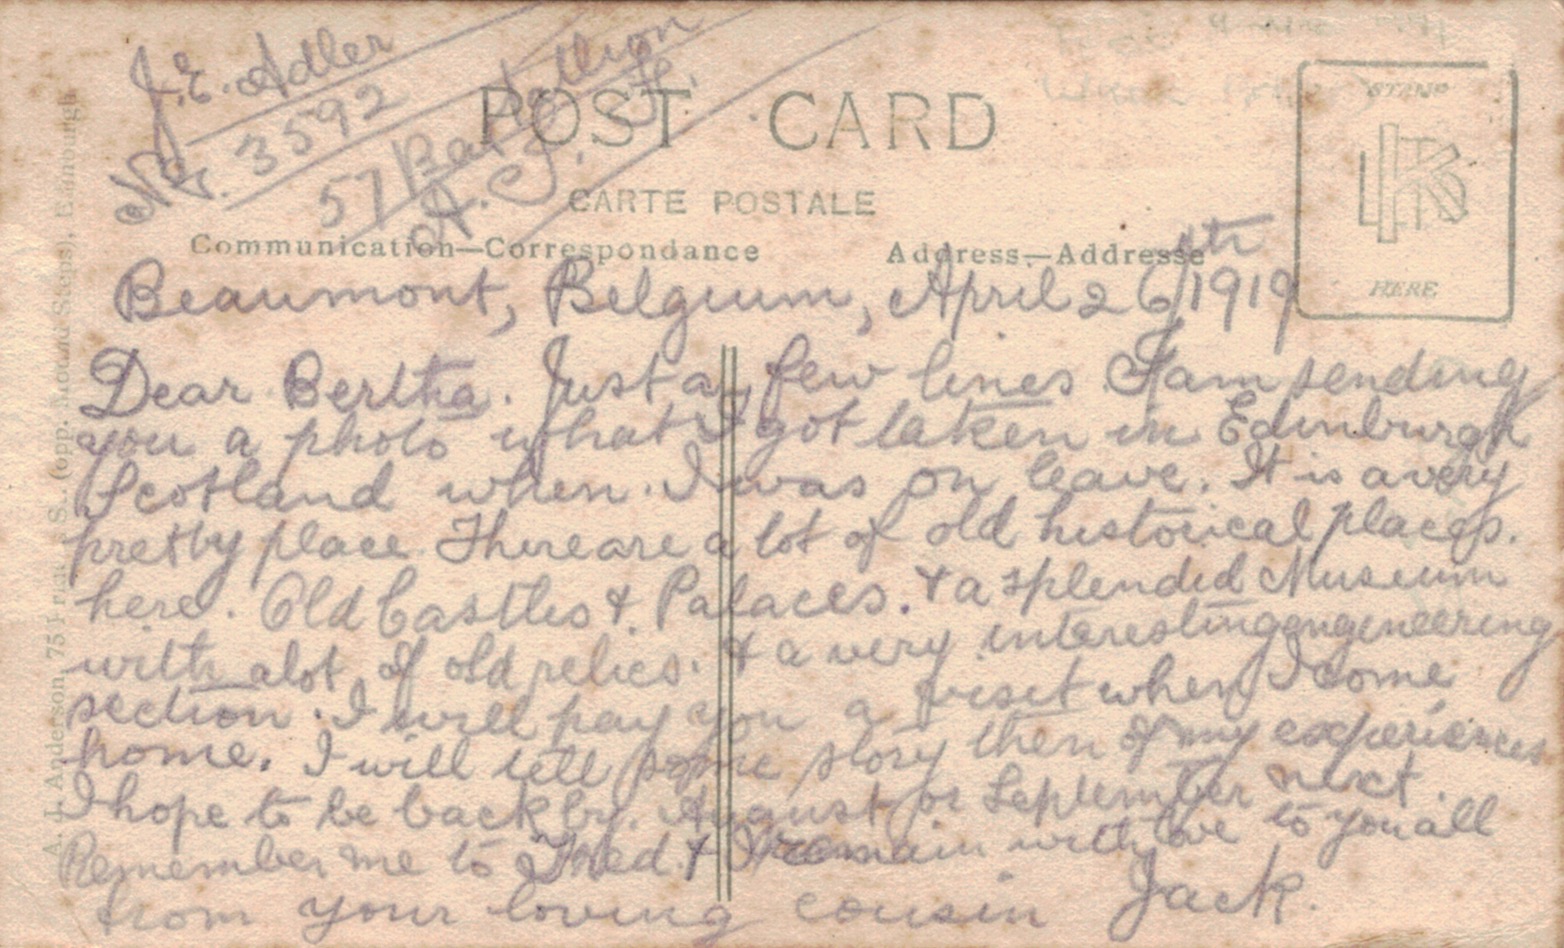 J.E. Adler
No. 3592
57 Battalion
A.I.F.
POST CARD
CARTE POSTALE
Communication—Correspondance
Address—Addresse
STAMP
HERE
Beaumont, Belgium, April 26th/1919
Dear Bertha. Just a few lines I am sending
you a photo what I got taken in Edinburgh
Scotland when I was on leave. It is a very
pretty place. There are a lot of old historical places.
here. Old Castles & Palaces. & a splendid Museum
with alot of old relics. & a very interesting engineering
section. I will pay you a visit when I come
home. I will tell some story then of my experiences
I hope to be back by. August or September next.
Remember me to Fred. & I remain with love to you all
from your loving cousin Jack.
A. J. Anderson, 75 (opp. Steps), Edinburgh